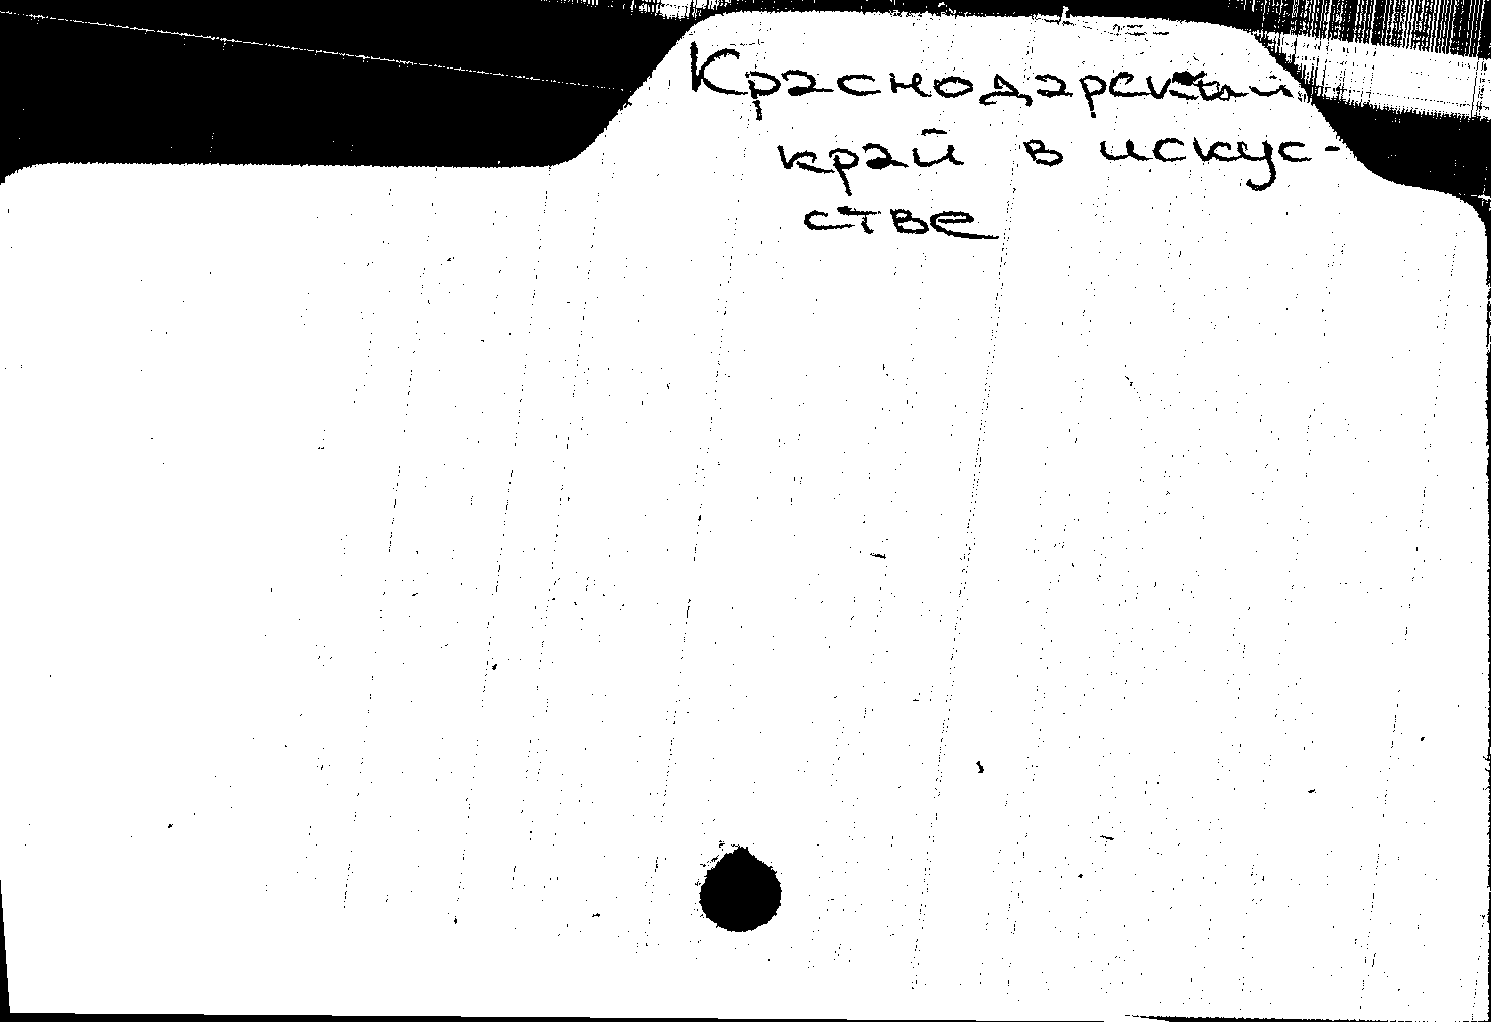 Краснодарский
край в искус-
стве